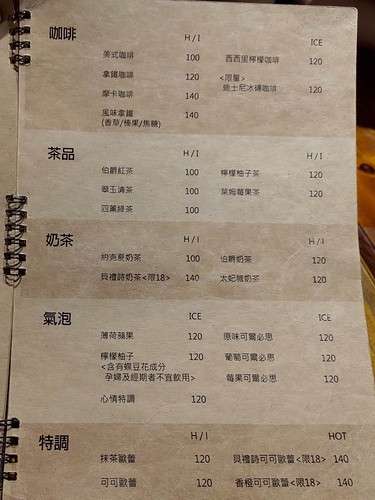 咖啡 H / I ICE
美式咖啡 100 西西里檸檬咖啡 120
拿鐵咖啡 120 <限量>
摩卡咖啡 140 迪士尼冰磚咖啡 120
風味拿鐵 140
(香草/榛果/焦糖)
茶品 H / I H / I
伯爵紅茶 100 檸檬柚子茶 120
翠玉清茶 100 萊姆莓果茶 120
四薰綠茶 100
奶茶 H / I H / I
約克夏奶茶 100 伯爵奶茶 120
貝禮詩奶茶<限18> 140 太妃糖奶茶 120
氣泡 ICE ICE
薄荷蘋果 120 原味可爾必思 120
檸檬柚子 120 葡萄可爾必思 120
<含有蝶豆花成分
孕婦及經期者不宜飲用> 莓果可爾必思 120
心情特調 120
特調 H / I HOT
抹茶歐蕾 120 貝禮詩可可歐蕾<限18> 140
可可歐蕾 120 香橙可可歐蕾<限18> 140